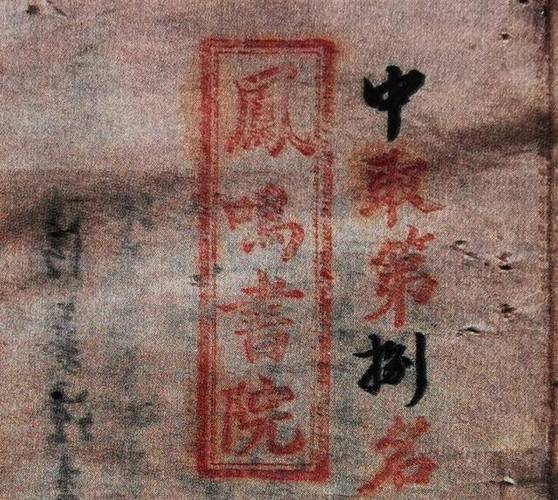 中取第捌名
鳳鳴書院